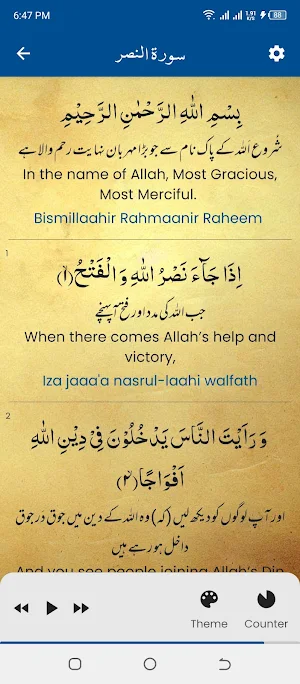 6:47 PM
1.91
K/s
88
سورة النصر
بِسْمِ اللهِ الرَّحْمٰنِ الرَّحِيْمِ
شُروع اللہ کے پاک نام سے جو بڑا مہربان نہایت رحم والا ہے
In the name of Allah, Most Gracious,
Most Merciful.
Bismillaahir Rahmaanir Raheem
1
اِذَا جَآءَ نَصْرُ اللهِ وَ الْفَتْحُ(۱)
جب اللہ کی مدد اور فتح آ پہنچے
When there comes Allah's help and
victory,
Iza jaaa'a nasrul-laahi walfath
2
وَ رَاَيْتَ النَّاسَ يَدْخُلُوْنَ فِيْ دِيْنِ اللهِ
اَفْوَاجًا(۲)
اور آپ لوگوں کو دیکھ لیں (کہ) وہ اللہ کے دین میں جوق دَر جوق
داخل ہو رہے ہیں
And you see people joining Allah's Din
Theme
Counter